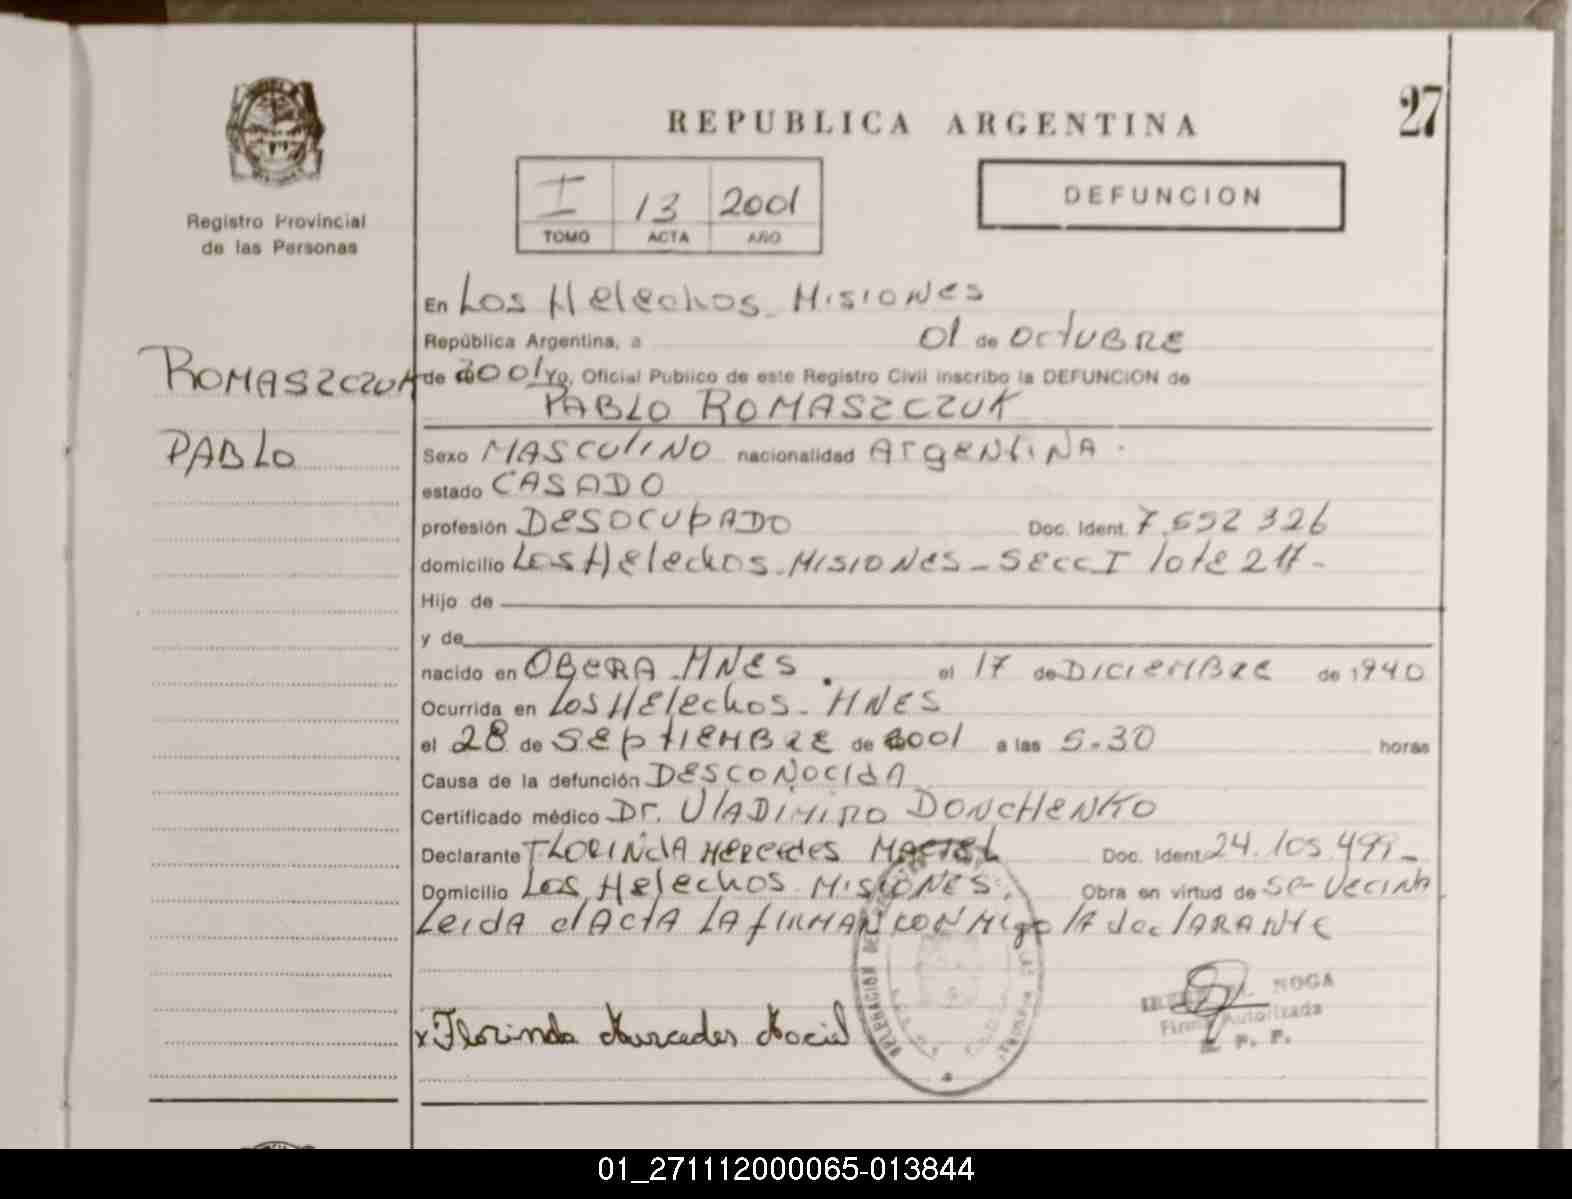 27
REPUBLICA ARGENTINA
I 13 2001
TOMO ACTA AÑO
DEFUNCION
Registro Provincial
de las Personas
ROMASZCZUK
PABLO
En Los Helechos - Misiones
República Argentina, a 01 de OctuBRE
de 2001 Yo, Oficial Público de este Registro Civil inscribo la DEFUNCION de
PABLO ROMASZCZUK
Sexo MASCULINO nacionalidad ArgentiNA.
estado CASADO
profesión DESOCUPADO Doc. Ident. 7.552 326
domicilio Los Helechos - MISIONES - SECC I lote
Hijo de
y de
nacido en OBERA - MNES. el 17 de DICIEMBRE de 1940
Ocurrida en Los Helechos - MNES
el 28 de SEptIEMBRE de 2001 a las 5.30 horas
Causa de la defunción DESCONOCIdA
Certificado médico Dr. VlADIMIRO DONCHENKO
Declarante FLORINdA MERCEdES MACIEL Doc. Ident. 24.105 499 -
Domicilio Los Helechos - MISIONES. Obra en virtud de SER VECINA
Leida el ActA LA fIRMAN CONMIgo lA declARANTE
x Florinda Mercedes Maciel
NOGA
Firma Autorizada
R. P. P.
01_271112000065-013844